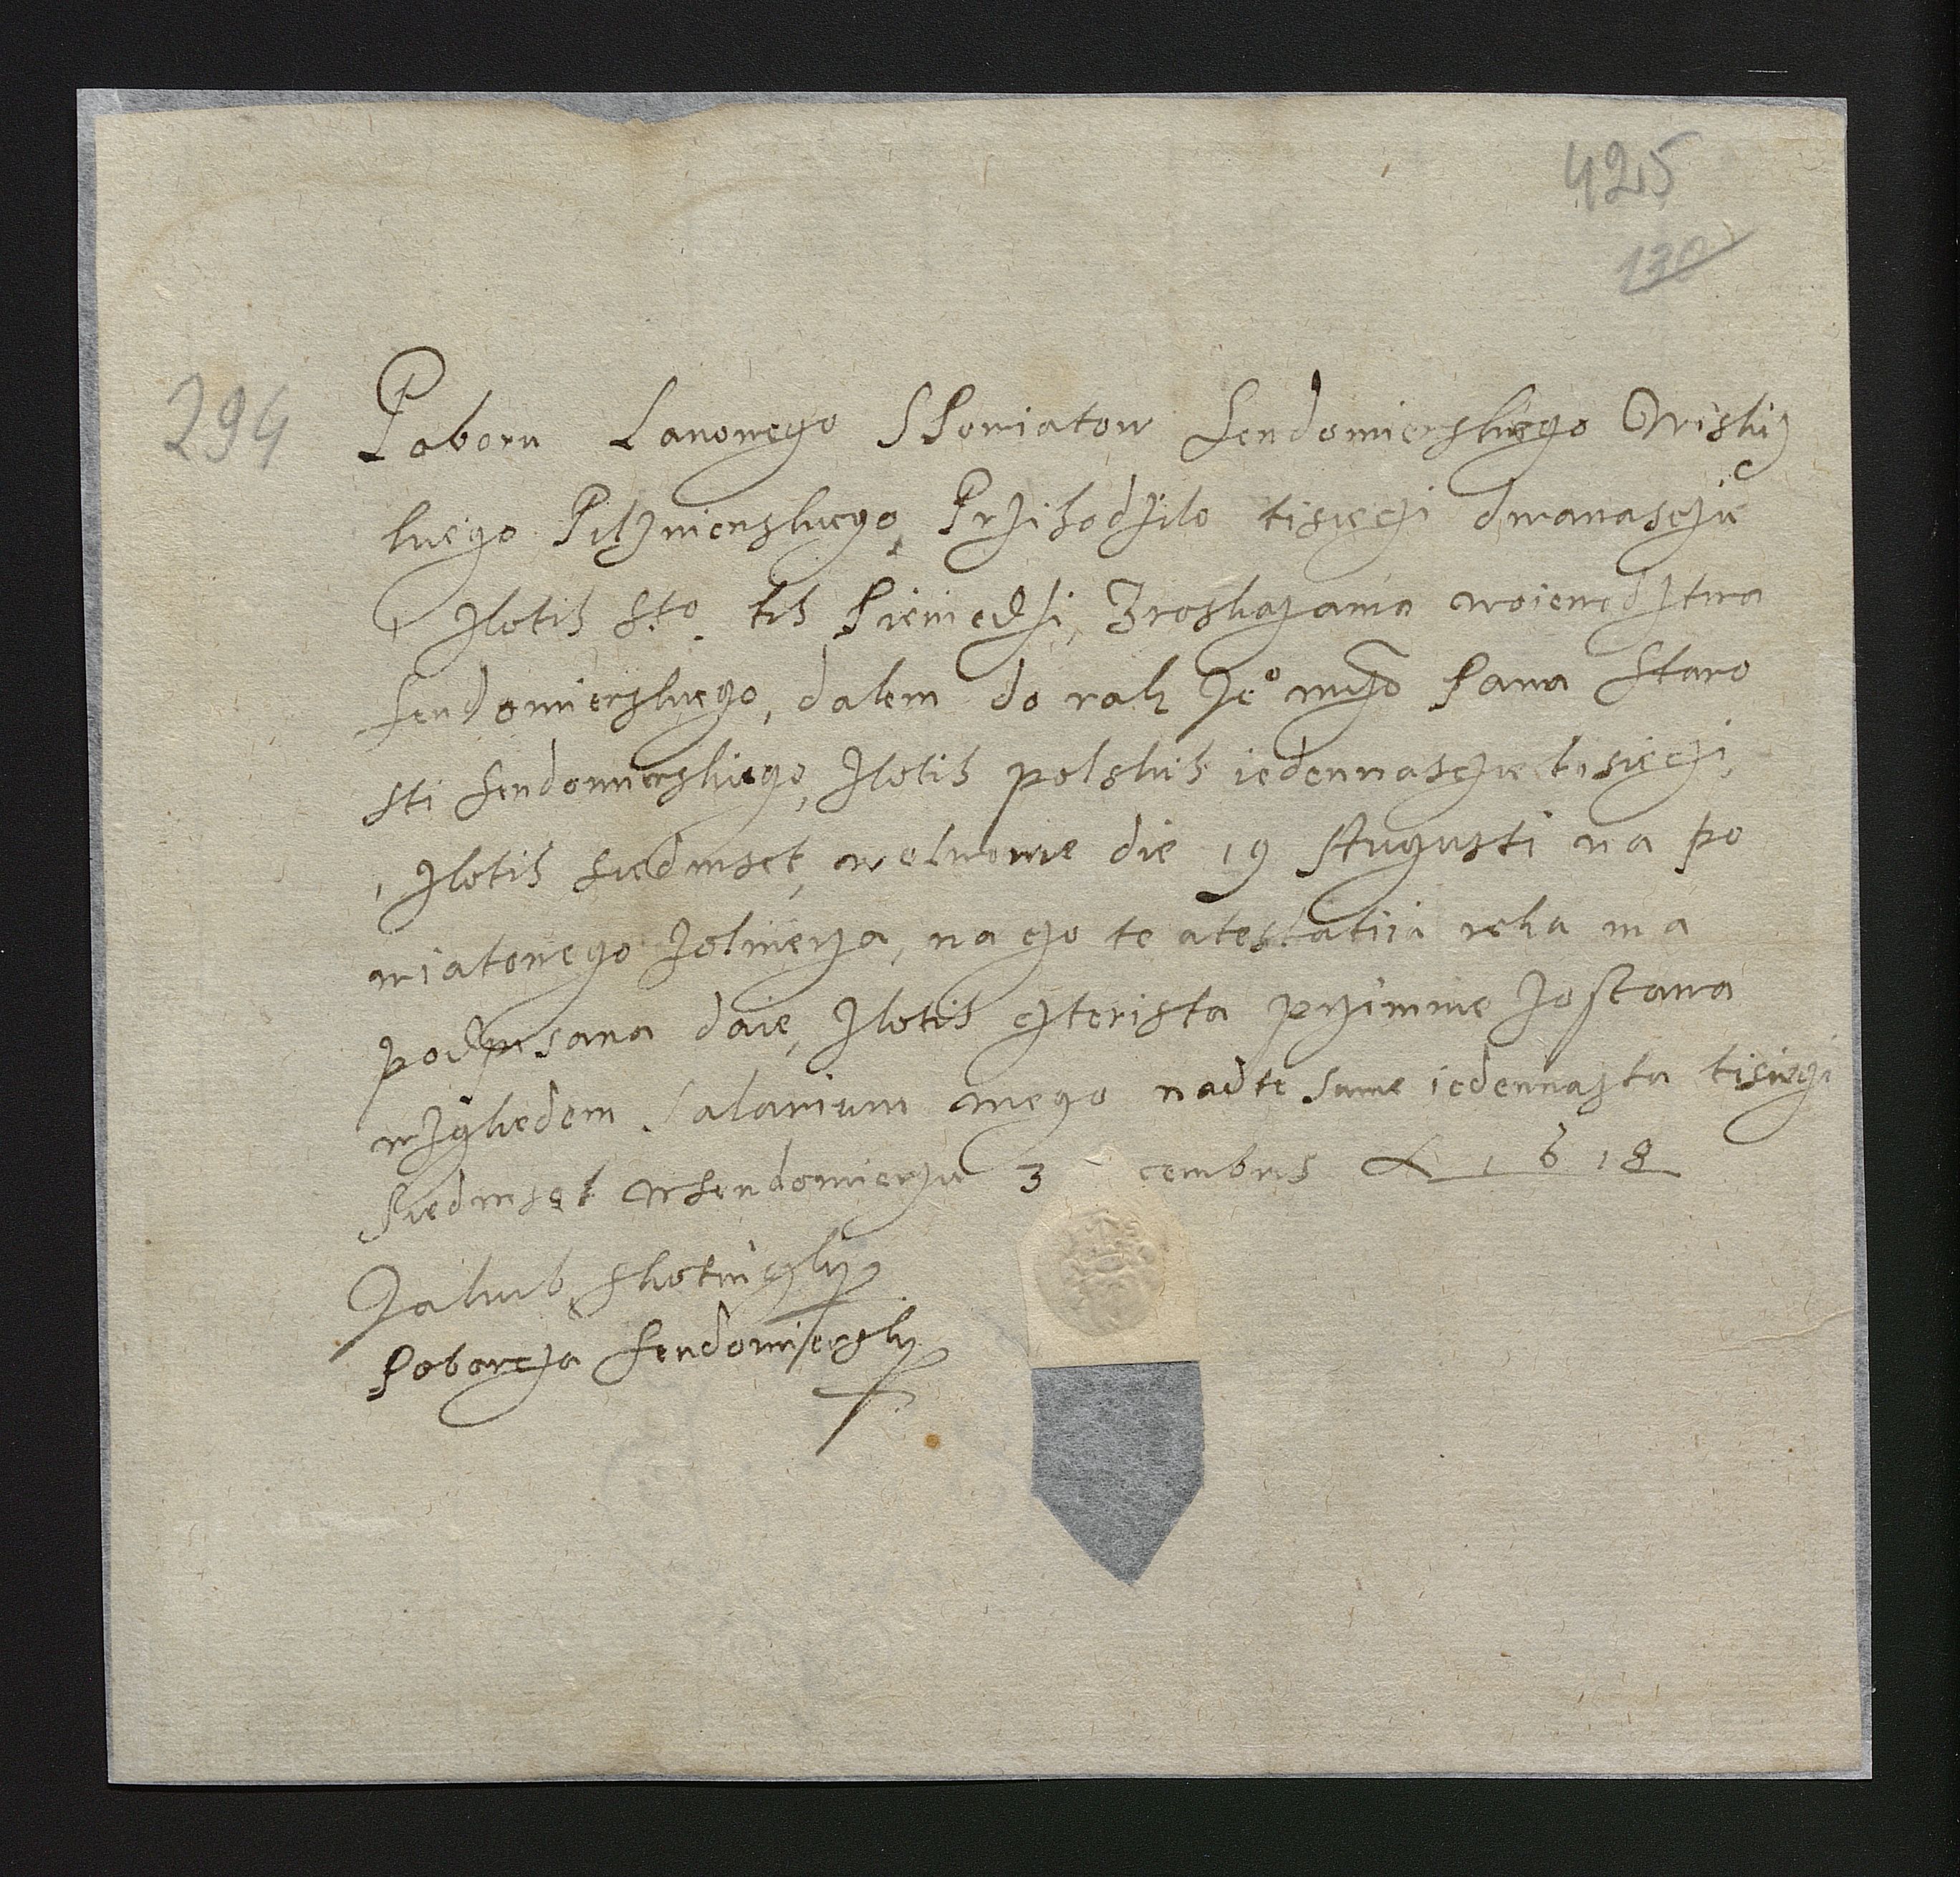 425
130
294
Poboru Lanowego SPowiatow Sendomierskiego Wislic
kiego Pilznienskiego, Przihodzilo tisięczi dwanasczie
i Zlotih sto. tih Pieniedzi, Zroskazania woiewodztwa
sendomierskiego, dalem do rak Je° mᵒ Pana Staro
sti sendomierskiego, Zlotih polskih iedennasczie tisięczi,
i Zlotih siedmset, welwowie die 19 Augusti na po
wiatowego Zolnierza, na czo te atestatiia reka ma
podpisana daie, Zlotih czterista przimnie Zostawa
wzgliedem Salarium mego nad te sume iedennasta tisięczi
siedmset wsendomierzu 3 cembris A 1618
Jakub
Poborcza sendomiersky